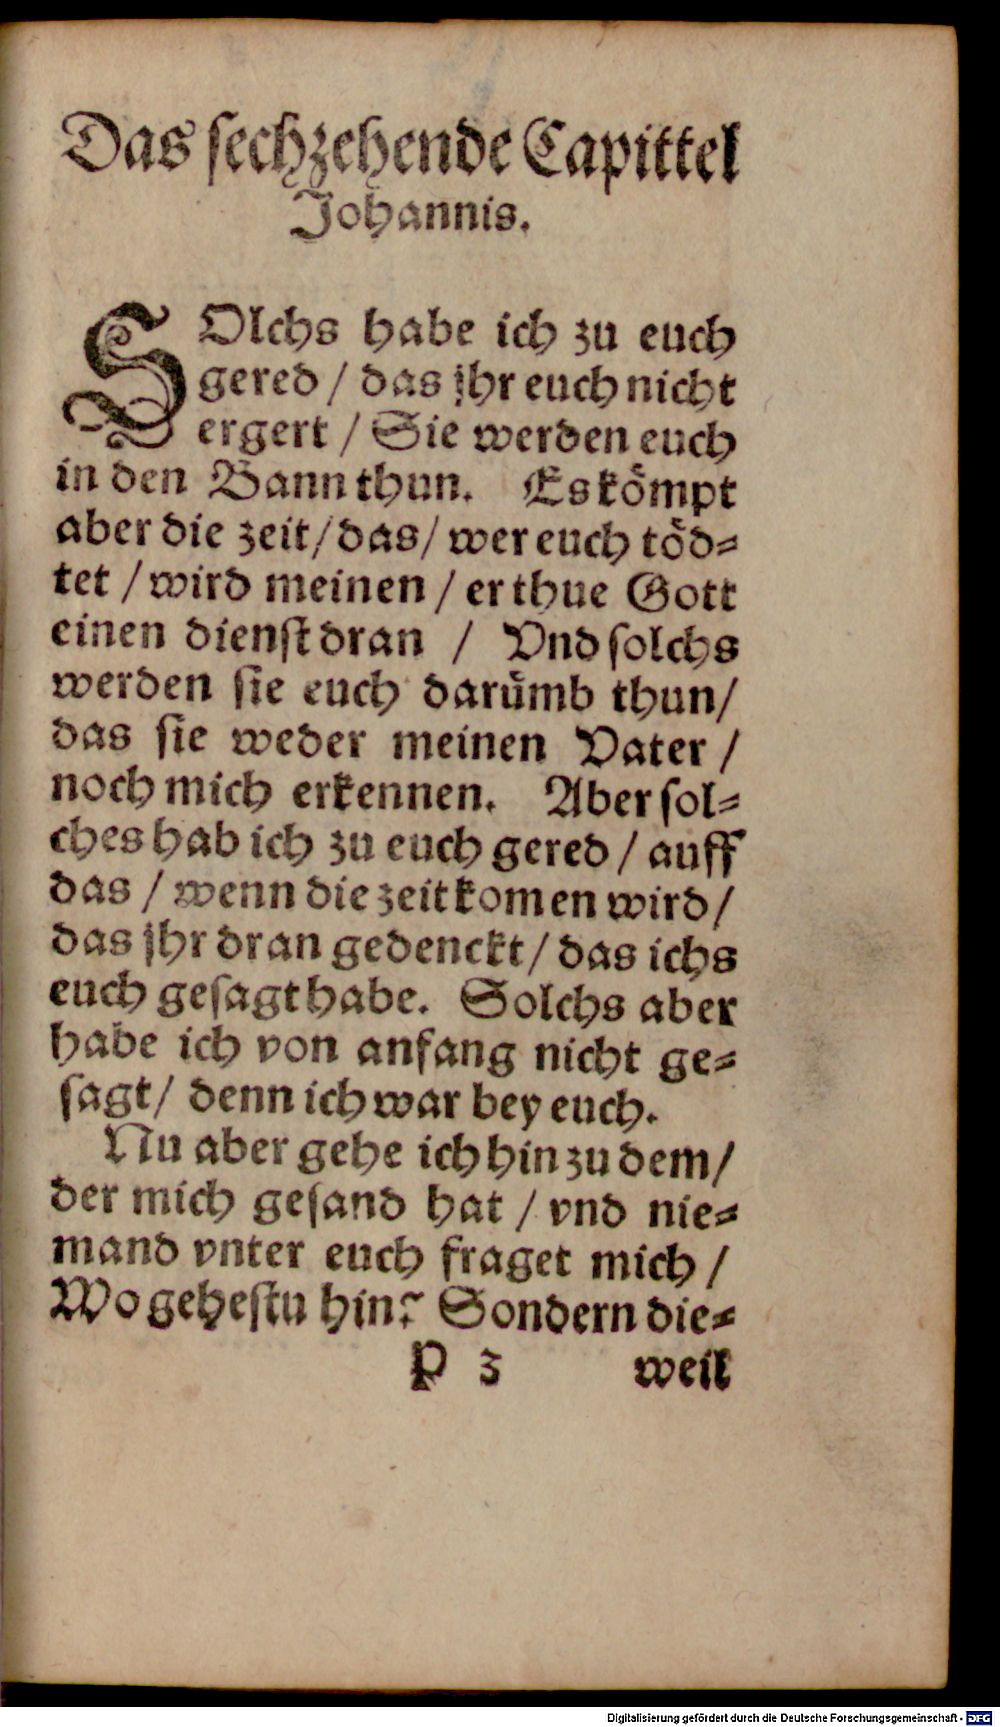 Das sechzehende Capittel
Johannis.
SOlchs habe ich zu euch
gered / das jhr euch nicht
ergert / Sie werden euch
in den Bann thun. Es kömpt
aber die zeit / das / wer euch töd⸗
tet / wird meinen / er thue Gott
einen dienst dran / Vnd solchs
werden sie euch darümb thun /
das sie weder meinen Vater /
noch mich erkennen. Aber sol⸗
ches hab ich zu euch gered / auff
das / wenn die zeit komen wird /
das jhr dran gedenckt / das ichs
euch gesagt habe. Solchs aber
habe ich von anfang nicht ge⸗
sagt / denn ich war bey euch.
Nu aber gehe ich hin zu dem /
der mich gesand hat / vnd nie⸗
mand vnter euch fraget mich /
Wo gehestu hin? Sondern die⸗
P 3 weil
Digitalisierung gefördert durch die Deutsche Forschungsgemeinschaft - DFG